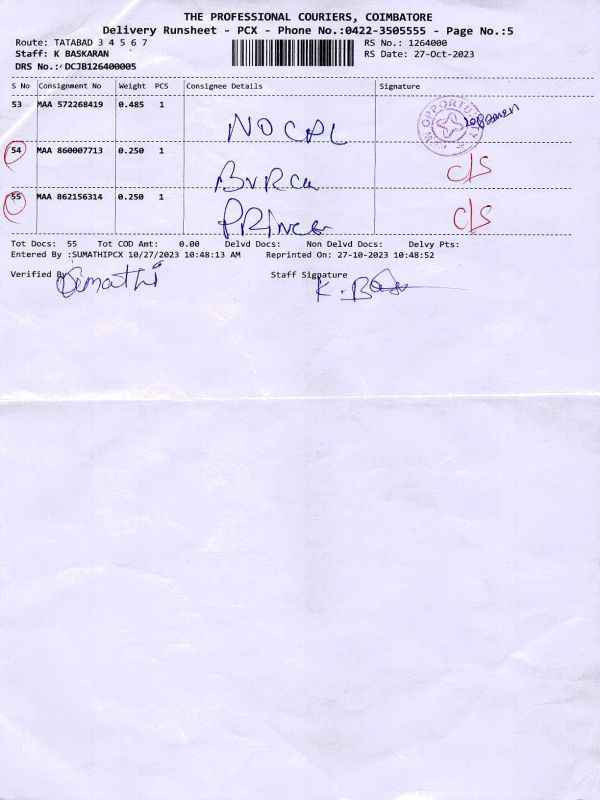 THE PROFESSIONAL COURIERS, COIMBATORE
Delivery Runsheet - PCX - Phone No.:0422-3505555 - Page No.:5
Route: TATABAD 3 4 5 6 7 RS No.: 1264000
Staff: K BASKARAN RS Date: 27-Oct-2023
DRS No.: DCJB126400005
S No Consignment No Weight PCS Consignee Details Signature
53 MAA 572268419 0.485 1 NOCPL OPPORTUNITY
54 MAA 860007713 0.250 1 C/S
55 MAA 862156314 0.250 1 PRINCE C/S
Tot Docs: 55 Tot COD Amt: 0.00 Delvd Docs: Non Delvd Docs: Delvy Pts:
Entered By :SUMATHIPCX 10/27/2023 10:48:13 AM Reprinted On: 27-10-2023 10:48:52
Verified By Sumathi Staff Signature